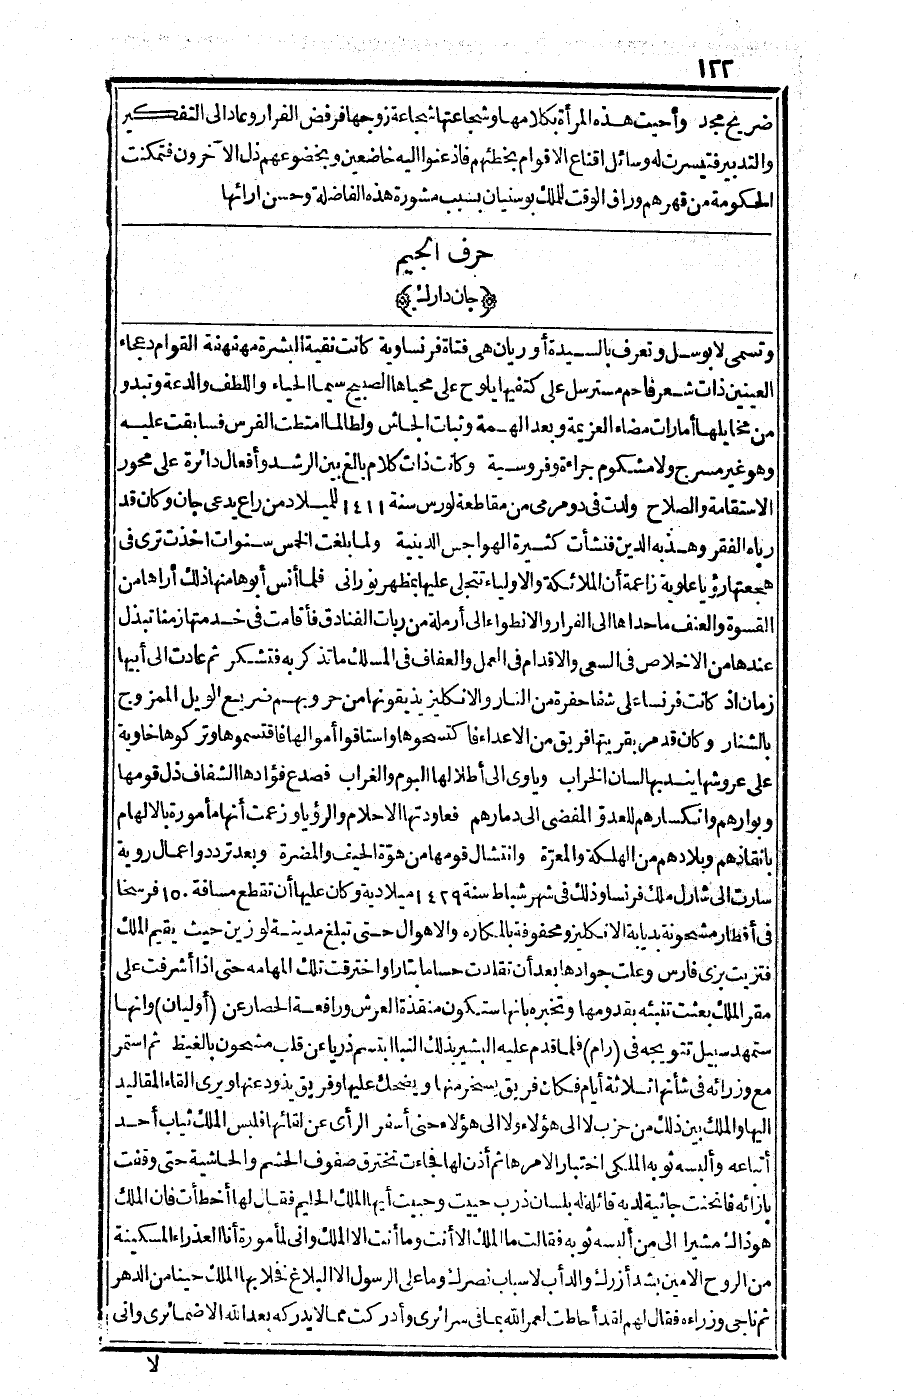 ١٢٢
ضريح مجد وأحيت هذه المرأة بكلامها وشجاعتها شجاعة زوجها فرفض الفرار وعاد الى التفكير
والتدبير فتيسرت له وسائل اقناع الاقوام بخطئهم فاذعنوا اليه خاضعين وبخضوعهم ذل الآخرون فتمكنت
الحكومة من قهرهم وراق الوقت للملك يوستنيان بسبب مشورة هذه الفاضلة وحسن ارائها
حرف الجيم
﴿جان دارك﴾
وتسمى لابوسل وتعرف بالسيدة أوريان هى فتاة فرنساوية كانت نقية البشرة مهفهفة القوام دعجاء
العينين ذات شعر فاحم مسترسل على كتفيها يلوح على محياها الصبيح سيما الحياء واللطف والدعة وتبدو
من مخايلها أمارات مضاء العزيمة وبعد الهمة وثبات الجاش ولطالما امتطت الفرس فسابقت عليه
وهو غير مسرج ولا مشكوم جراءة وفروسية وكانت ذات كلام بالغ بين الرشد وأفعال دائرة على محور
الاستقامة والصلاح ولدت فى دومرمى من مقاطعة لورس سنة ١٤١١ للميلاد من راع يدعى جان وكان قد
رباه الفقر وهذبه الدين فنشأت كثيرة الهواجس الدينية ولما بلغت الخمس سنوات اخذت ترى فى
هجعتها رؤيا علوية زاعمة أن الملائكة والاولياء تتجلى عليها بمظهر نورانى فلما أنس أبوها منها ذلك أراها من
القسوة والعنف ما حداها الى الفرار والانطواء الى أرملة من ربات الفنادق فأقامت فى خدمتها زمنا تبذل
عندها من الاخلاص فى السعى والاقدام فى العمل والعفاف فى المسلك ما تذكر به فتشكر ثم عادت الى أبيها
زمان اذ كانت فرنسا على شفا حفرة من النار والانكليز يذيقونها من حروبهم ضريع الويل الممزوج
بالشنار وكان قد مر بقريتها فريق من الاعداء فاكتسحوها واستاقوا أموالها فاقتسموها وتركوها خاوية
على عروشها يندبها لسان الخراب وياوى الى أطلالها البوم والغراب فصدع فؤادها الشفاف ذل قومها
وبوارهم وانكسارهم للعدو المفضى الى دمارهم فعاودتها الاحلام والرؤيا وزعمت أنها مأمورة بالالهام
بانقاذهم وبلادهم من الهلكة والمعرة وانتشال قومها من هوة الحيف والمضرة وبعد تردد واعمال روية
سارت الى شارل ملك فرنسا وذلك فى شهر شباط سنة ١٤٢٩ ميلادية وكان عليها أن تقطع مسافة ١٥٠ فرسخا
فى أقطار مشحونة بدبابة الانكليز ومحفوفة بالمكاره والاهوال حتى تبلغ مدينة لوزين حيث يقيم الملك
فتزيت بزى فارس وعلت جوادها بعد أن تقلدت حساما بتارا واخترقت تلك المهامه حتى اذا أشرفت على
مقر الملك بعثت تنبئه بقدومها وتخبره بانها ستكون منقذة العرش ورافعة الحصار عن (أوليان) وانها
ستمهد سبيل تتويجه فى (رام) فلما قدم عليه البشير بذلك النبا ابتسم زريا عن قلب مشحون بالغيظ ثم استمر
مع وزرائه فى شأنها ثلاثة أيام فكان فريق يسخر منها ويضحك عليها وفريق يذود عنها ويرى القاء المقاليد
اليها والملك بين ذلك من حزب لا الى هؤلاء ولا الى هؤلاء حتى أسفر الرأى عن لقائها فلبس الملك ثياب أحد
أتباعه وألبسه ثوبه الملكى اختبار الامرها ثم أذن لها فجاءت تخترق صفوف الحشم والحاشية حتى وقفت
بازائه فانحنت جاثية لديه قائلة له بلسان ذرب حييت وحبيت أيها الملك الحليم فقال لها أخطأت فان الملك
هوذاك مشيرا الى من ألبسه ثوبه فقالت ما الملك الا أنت وما أنت الا الملك وانى لمأمورة أنا العذراء المسكينة
من الروح الامين بشد أزرك والدأب لاسباب نصرك وما على الرسول الا البلاغ فخلا بها الملك حينا من الدهر
ثم ناجى وزراءه فقال لهم لقد أحاطت لعمر الله بمافى سرائرى وأدركت ممالا يدركه بعد الله الا ضمائرى وانى
لا